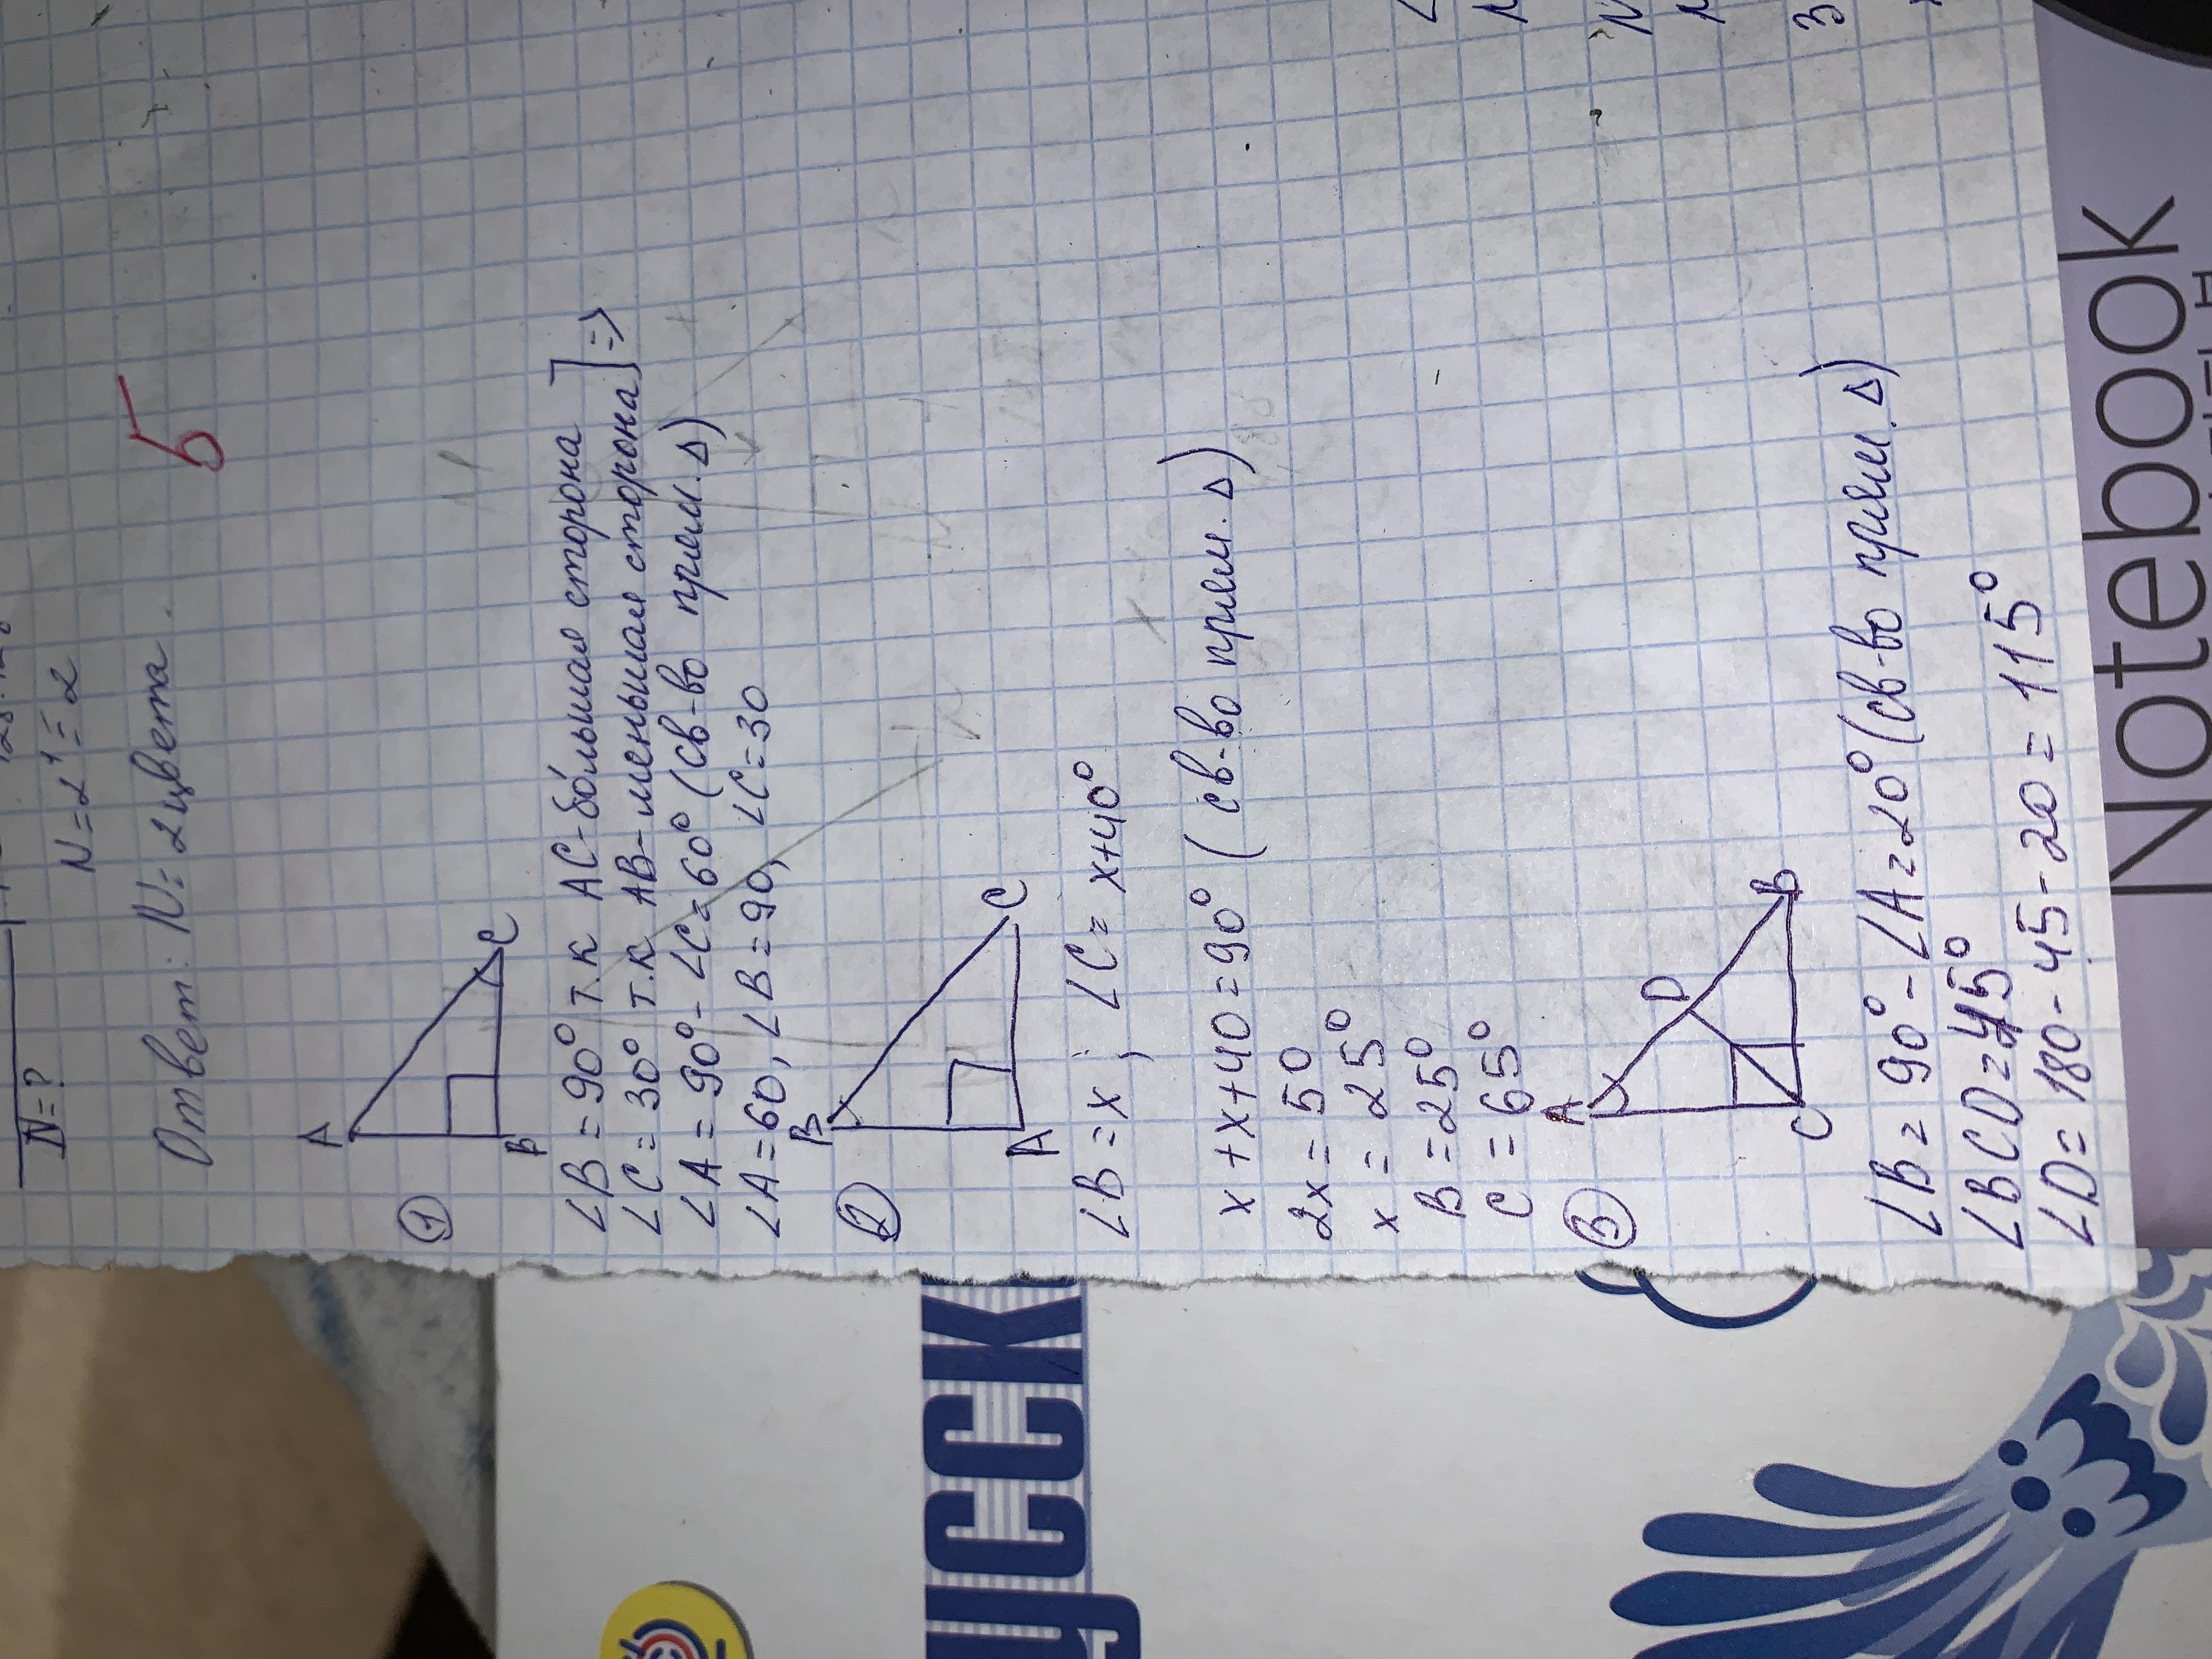 N=?
N=2¹=2
Ответ: N=2цвета.
5
①
A
B
C
∠B=90° т.к AC-бо́льшая сторона]
∠C=30° т.к AB-меньшая сторона]=>
∠A=90°-∠C=60° (св-во прям.Δ)
∠A=60, ∠B=90, ∠C=30
②
B
A
C
∠B=x; ∠C=x+40°
x+x+40=90° (св-во прям.Δ)
2x=50
x=25°
B=25°
C=65°
③
A
D
C
B
∠B=90°-∠A=20° (св-во прям.Δ)
∠BCD=45°
∠D=180-45-20=115°
Notebook
УССК